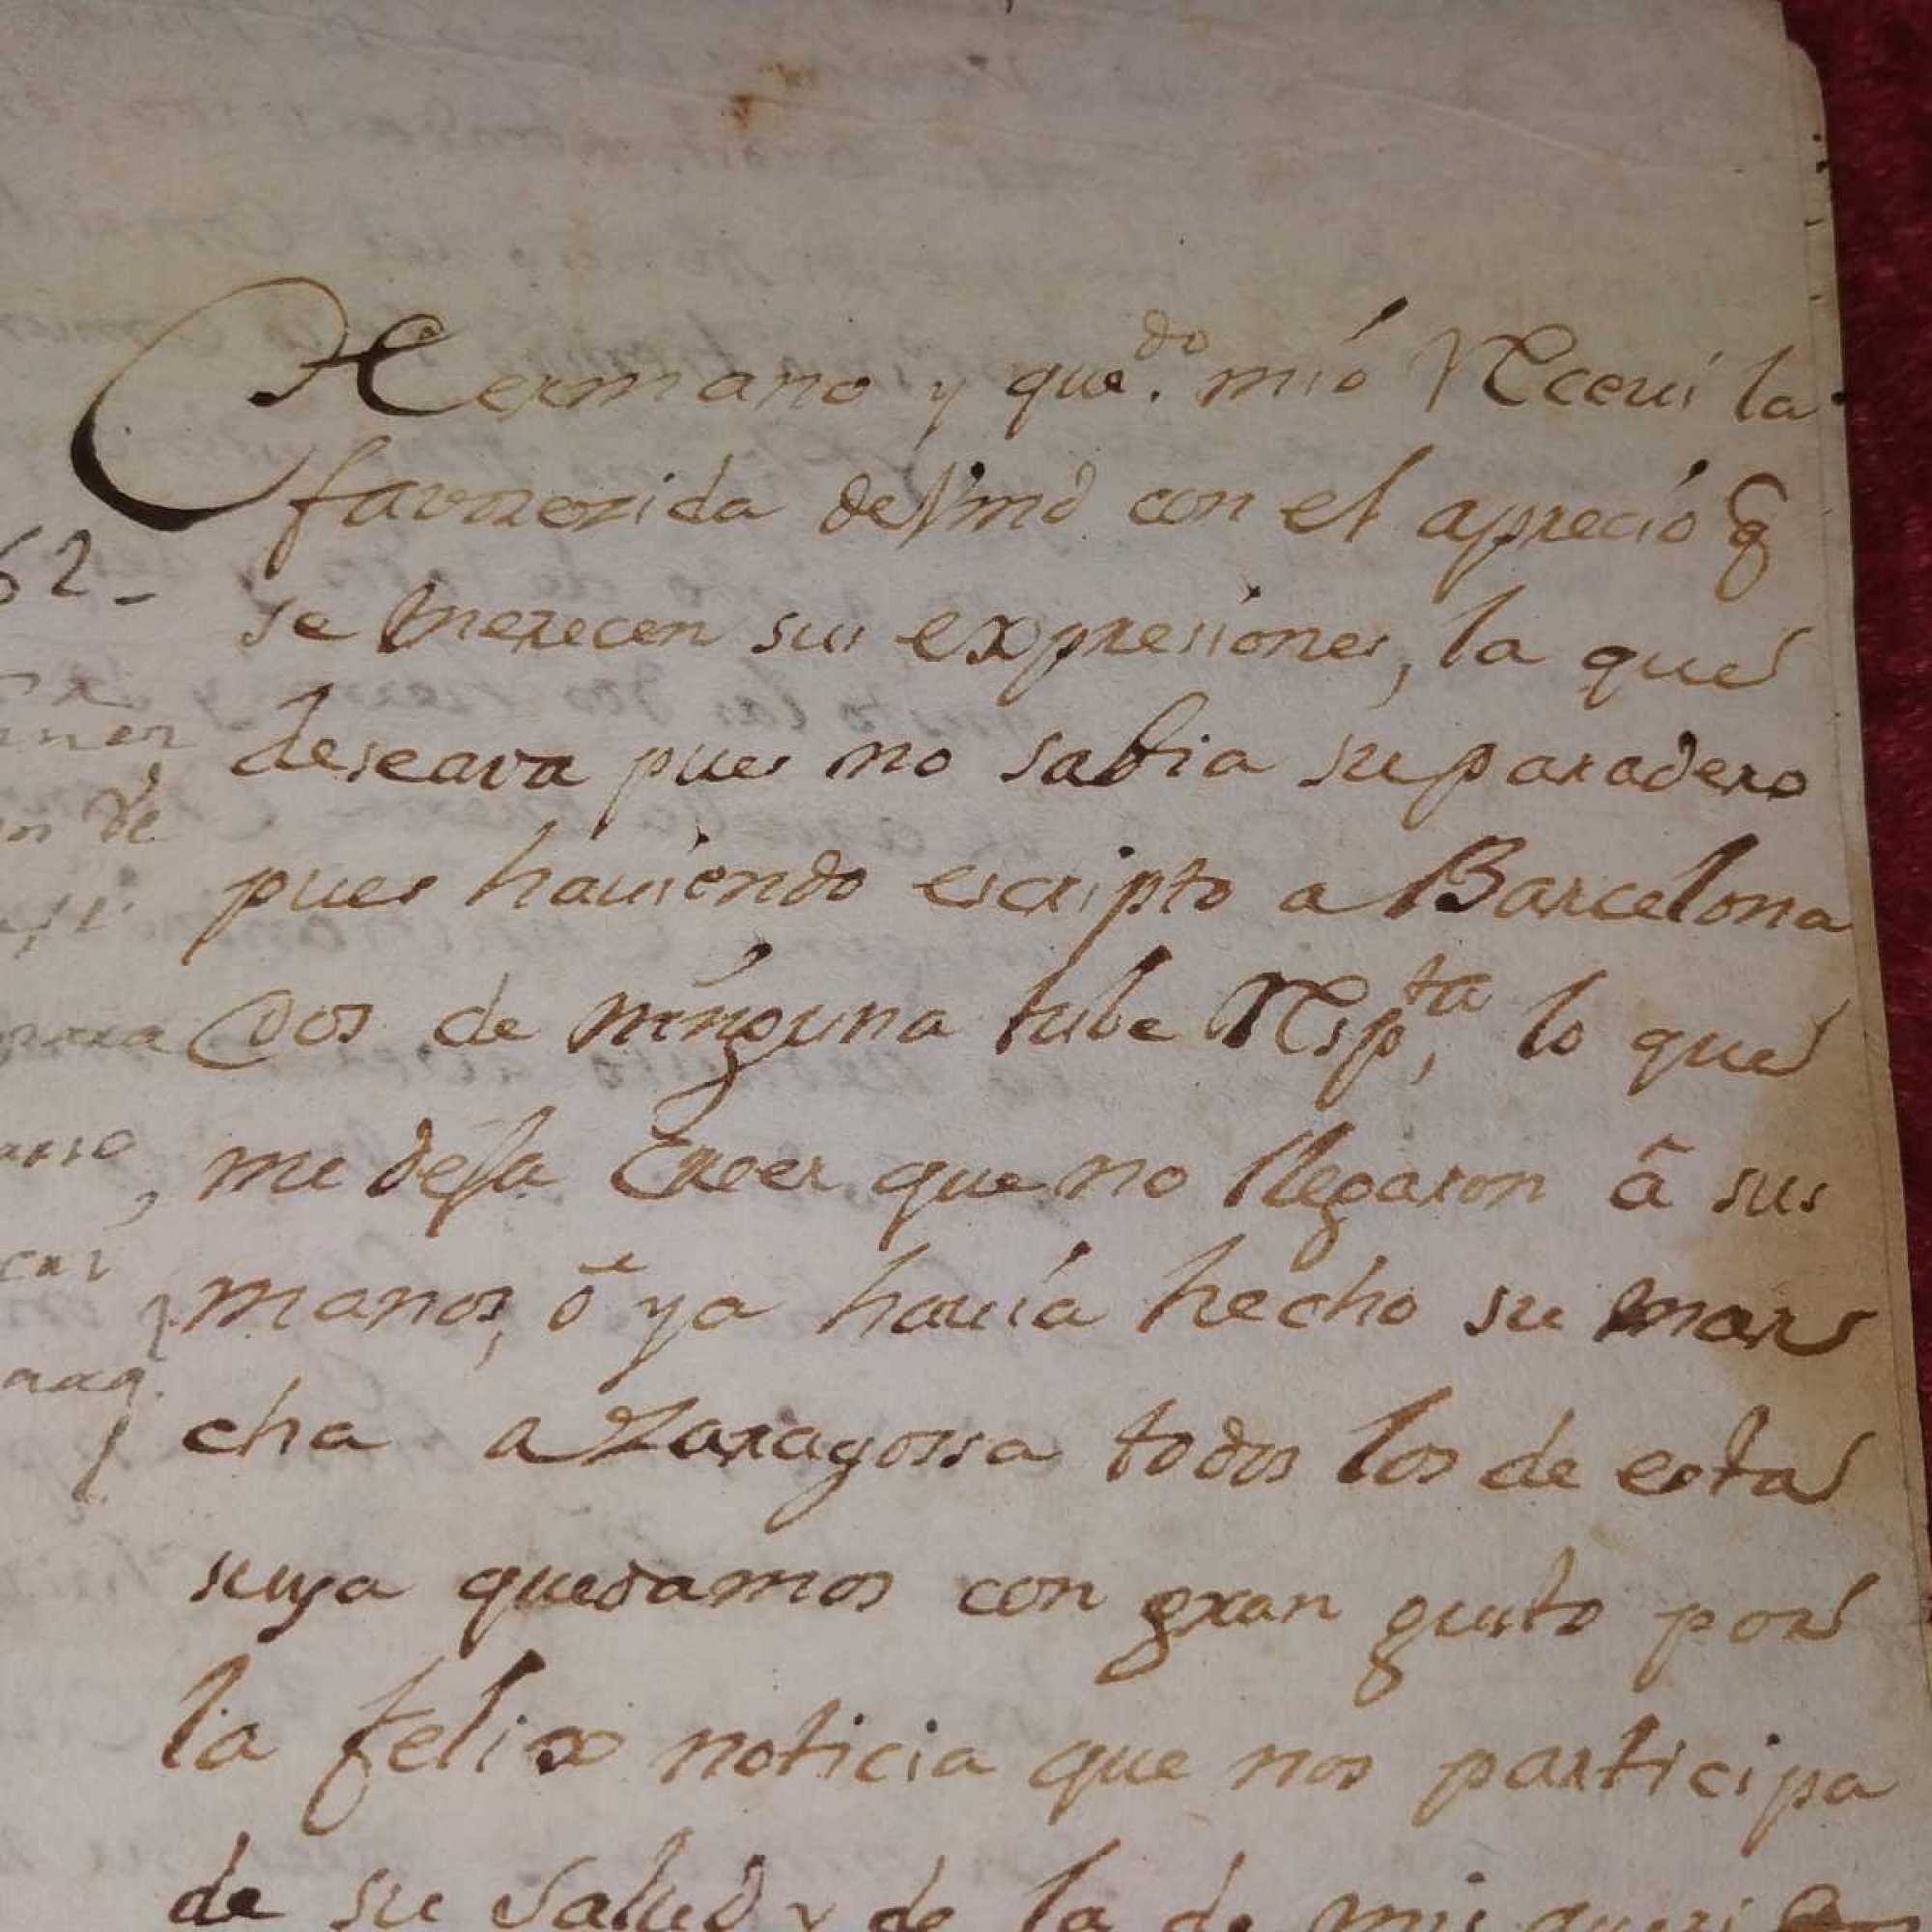 Hermano y que.do mió Recevi la
favorezida de Vmd con el aprecio q
se merecen sus expresiones, la que
deseava pues no sabia su paradero
62-
pues haviendo escripto a Barcelona
de
dos de ninguna tube Resp.ta, lo que
me deja Creer que no llegaron â sus
manos, ô ya havia hecho su mar
cha a Zaragossa todos los de esta
suya quedamos con gran gusto por
la felix noticia que nos participa
de su salud y de la de mi queri